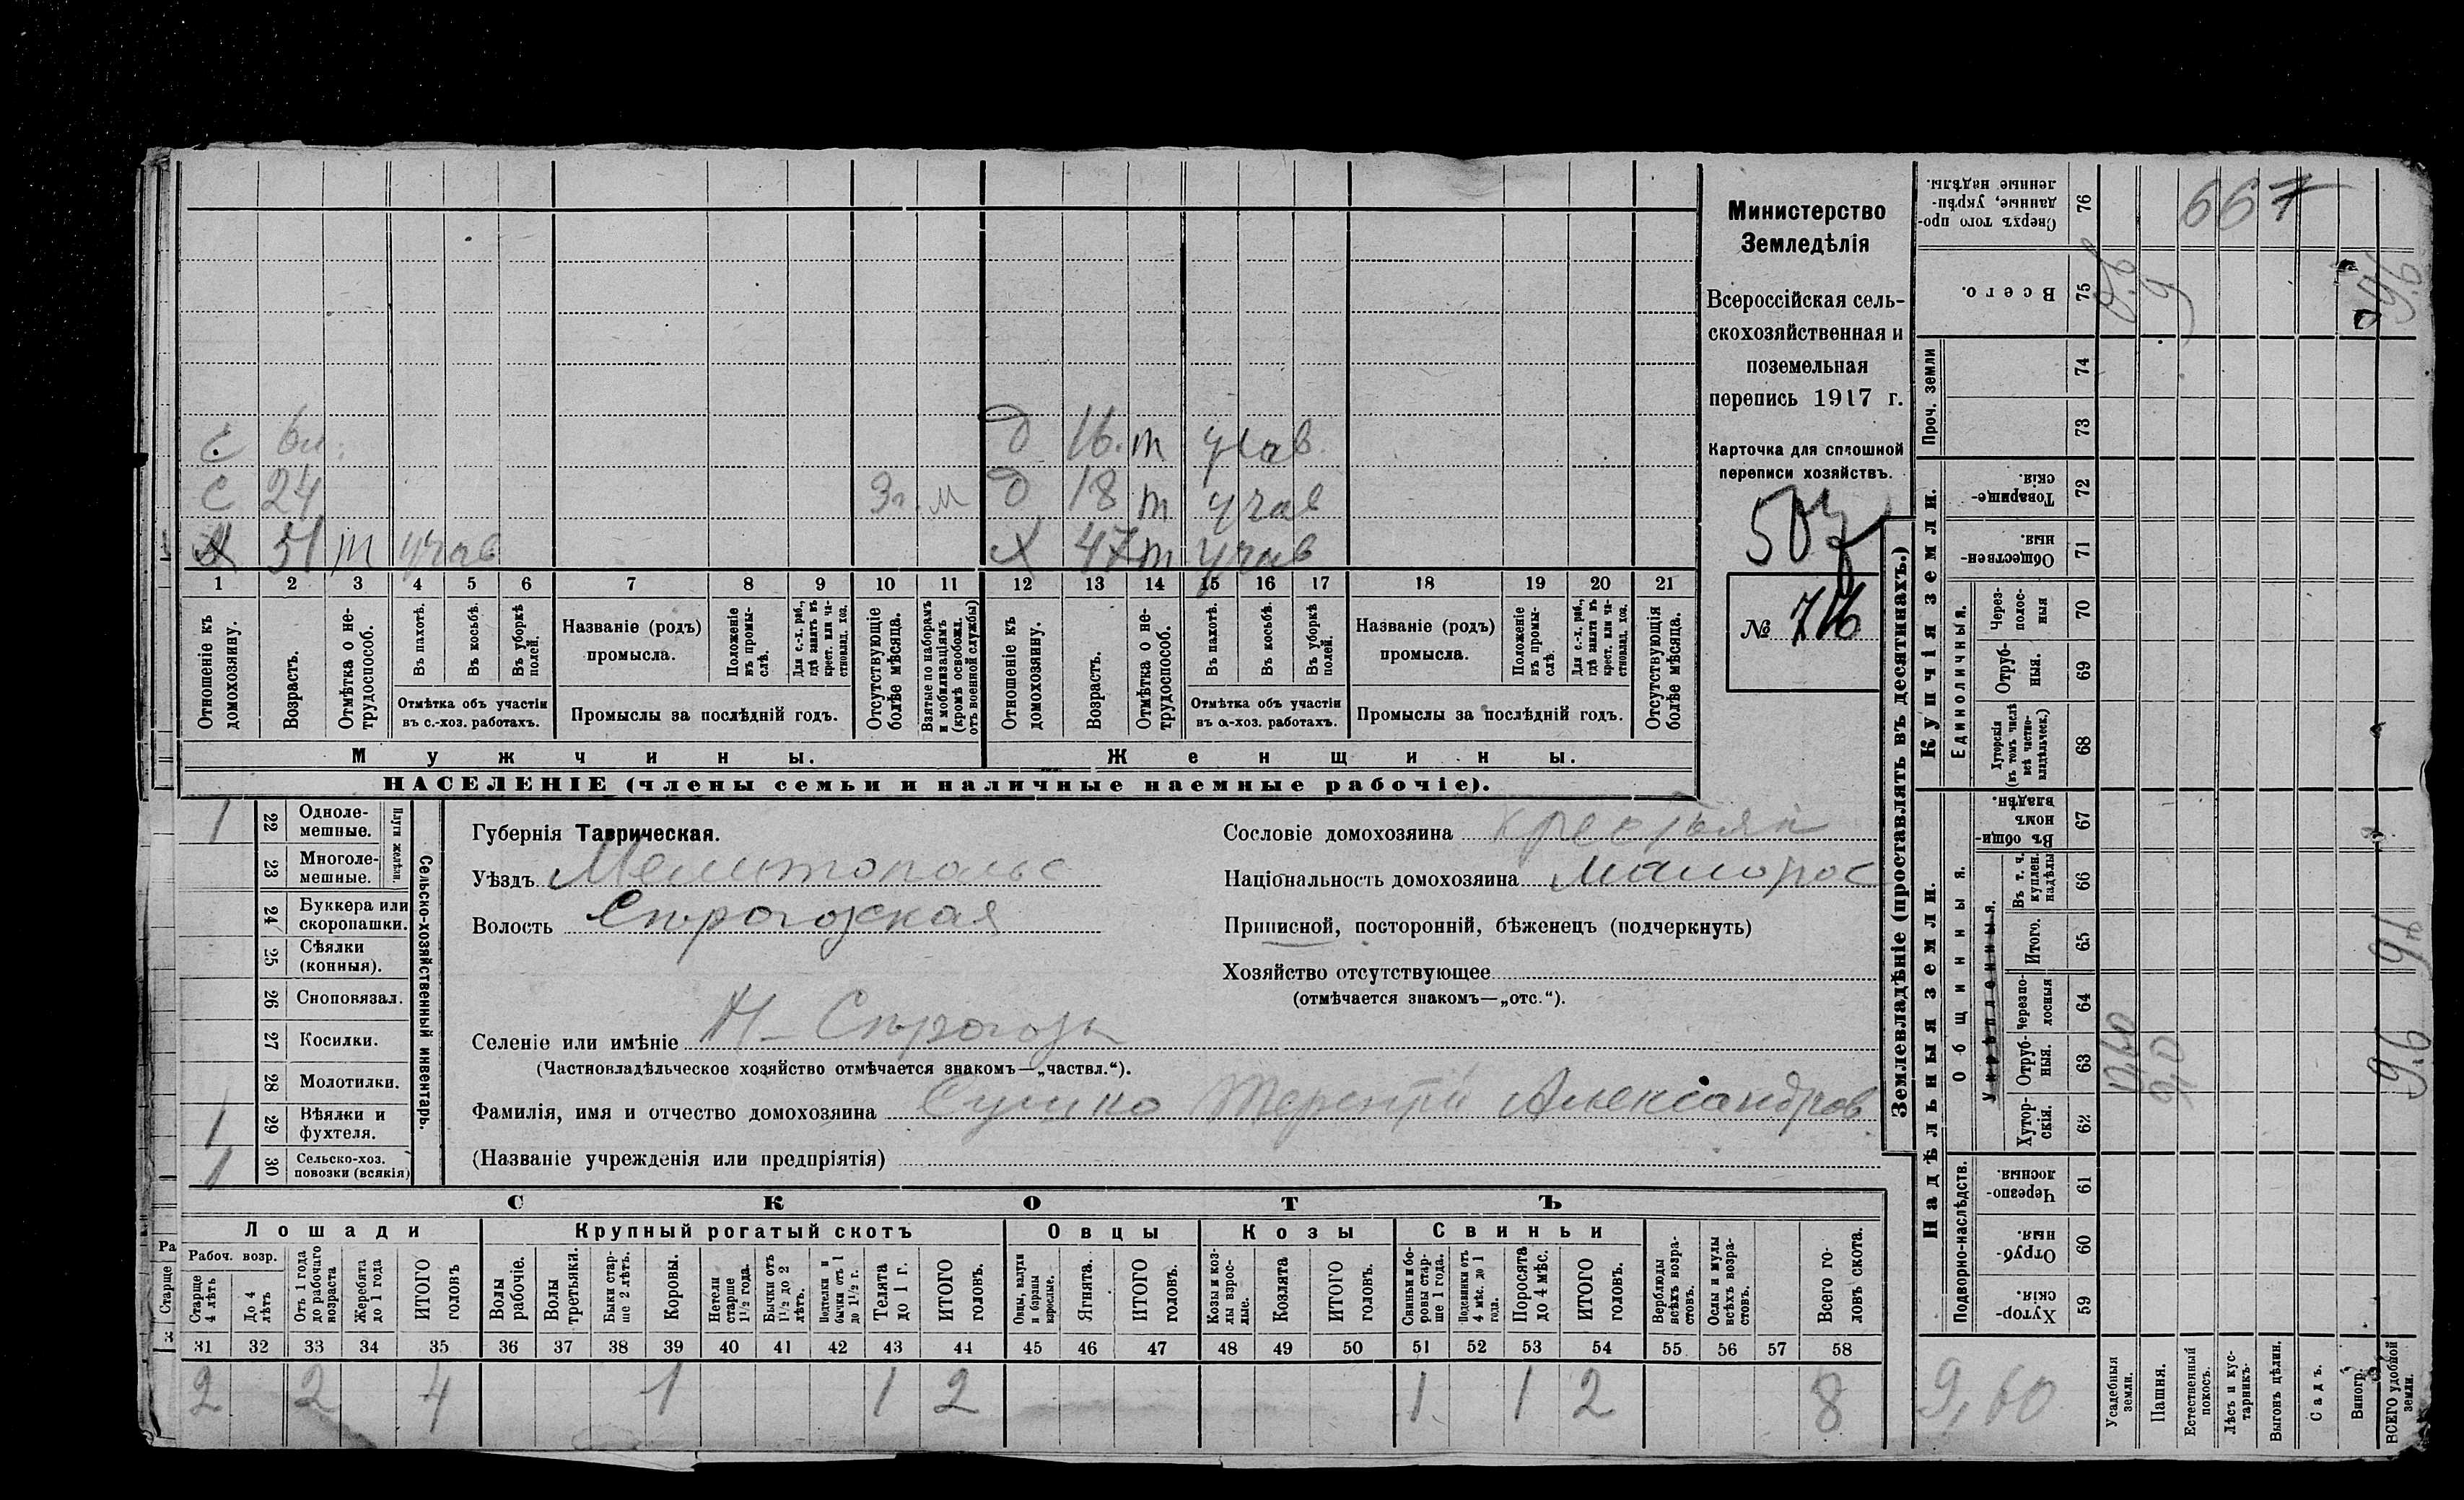 667
Министерство
Земледѣлія
Всероссійская сель-
скохозяйственная и
поземельная
перепись 1917 г.
Карточка для сплошной
переписи хозяйствъ.
№ 716
с 6м. д 16. т учав
с 24 3г. м д 18 т учав
х 51 т учав х 47 т учав
1 2 3 4 5 6 7 8 9 10 11 12 13 14 15 16 17 18 19 20 21
Отношеніе къ домохозяину.
Возрастъ.
Отмѣтка о не-трудоспособ.
Въ пахотѣ.
Въ косьбѣ.
Въ уборкѣ полей.
Отмѣтка объ участіи въ с.-хоз. работахъ.
Названіе (родъ) промысла.
Положеніе въ промы-слѣ.
Для с.-х. раб., гдѣ занятъ въ крест. или ча-стновлад. хоз.
Промыслы за послѣдній годъ.
Отсутствующіе болѣе мѣсяца.
Взятые по наборамъ и мобилизаціямъ (кромѣ освобожд. отъ военной службы)
Отношеніе къ домохозяину.
Возрастъ.
Отмѣтка о не-трудоспособ.
Въ пахотѣ.
Въ косьбѣ.
Въ уборкѣ полей.
Отмѣтка объ участіи въ с.-хоз. работахъ.
Названіе (родъ) промысла.
Положеніе въ промы-слѣ.
Для с.-х. раб., гдѣ занята въ крест. или ча-стновлад. хоз.
Промыслы за послѣдній годъ.
Отсутствующія болѣе мѣсяца.
Мужчины. Женщины.
НАСЕЛЕНІЕ (члены семьи и наличные наемные рабочіе).
Сельско-хозяйственный инвентарь.
Плуги желѣзн.
1 22 Одноле-мешные.
23 Многоле-мешные.
24 Буккера или скоропашки.
25 Сѣялки (конныя).
26 Сноповязал.
27 Косилки.
28 Молотилки.
1 29 Вѣялки и фухтеля.
1 30 Сельско-хоз. повозки (всякія)
Губернія Таврическая.
Уѣздъ Мелитопольс
Волость Сѣрогозская
Селеніе или имѣніе Н-Сѣрогозы
(Частновладѣльческое хозяйство отмѣчается знакомъ—„частвл.“).
Фамилія, имя и отчество домохозяина Сушко Терентій Александров
(Названіе учрежденія или предпріятія)
Сословіе домохозяина крестьян
Національность домохозяина малорос
Приписной, посторонній, бѣженецъ (подчеркнуть)
Хозяйство отсутствующее
(отмѣчается знакомъ—„отс.“).
СКОТЪ
Лошади Крупный рогатый скотъ Овцы Козы Свиньи
Рабоч. возр.
Старше 4 лѣтъ
До 4 лѣтъ
Отъ 1 года до рабочаго возраста
Жеребята до 1 года
ИТОГО головъ
Волы рабочіе.
Волы третьяки.
Быки стар-ше 2 лѣтъ.
Коровы.
Нетели старше 1½ года.
Бычки отъ 1½ до 2 лѣтъ.
Подтелки и бычки отъ 1 до 1½ г.
Телята до 1 г.
ИТОГО головъ.
Овцы, валухи и бараны взрослые.
Ягнята.
ИТОГО головъ.
Козы и коз-лы взрос-лые.
Козлята
ИТОГО головъ.
Свиньи и бо-ровы стар-ше 1 года.
Подсвинки отъ 4 мѣс. до 1 года.
Поросята до 4 мѣс.
ИТОГО головъ.
Верблюды всѣхъ возра-стовъ.
Ослы и мулы всѣхъ возра-стовъ.
Всего го-ловъ скота.
31 32 33 34 35 36 37 38 39 40 41 42 43 44 45 46 47 48 49 50 51 52 53 54 55 56 57 58
2 2 4 1 1 2 1 1 2 8
Землевладѣніе (проставлять въ десятинахъ.)
Надѣльныя земли. Купчія земли. Проч. земли
Подворно-наслѣдств.
Общинныя.
Укрѣпленныя.
Единоличныя.
59 Хутор-скія.
60 Отруб-ныя.
61 Черезпо-лосныя
62 Хутор-скія.
63 Отруб-ныя.
64 Черезпо-лосныя
65 Итого.
66 Въ т. ч. куплен. надѣлы
67 Въ общин-номъ владѣн.
68 Хуторскія (въ томъ числѣ всѣ частно-владѣльческ.)
69 Отруб-ныя.
70 Через-полос-ныя
71 Обществен-ныя.
72 Товарище-скія.
73
74
75 Всего.
76 Сверхъ того про-данные, укрѣп-ленные надѣлы.
Усадебныя земли.
Пашня.
Естественный покосъ.
Лѣсъ и кус-тарникъ.
Выгонъ цѣлин.
Садъ.
Виногр.
ВСЕГО удобной земли.
9,60
0,60
9,0
9.6
Ра
Старше